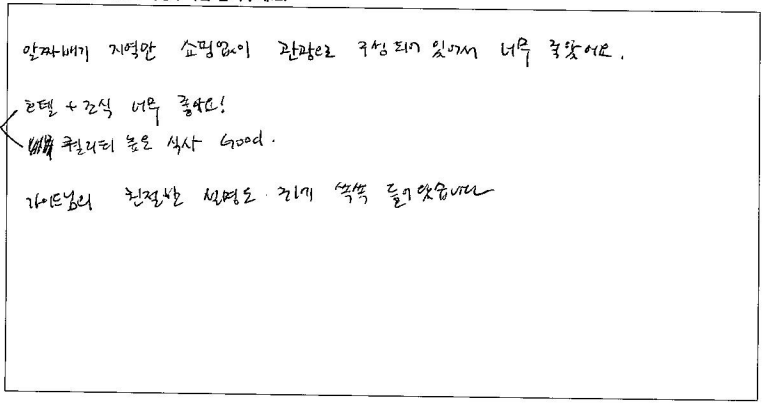 알짜배기 지역만 쇼핑없이 관광으로 구성되어 있어서 너무 좋았어요.
호텔 + 조식 너무 좋아요!
퀄리티 높은 식사 Good.
가이드님의 친절한 설명도 귀에 쏙쏙 들어왔습니다